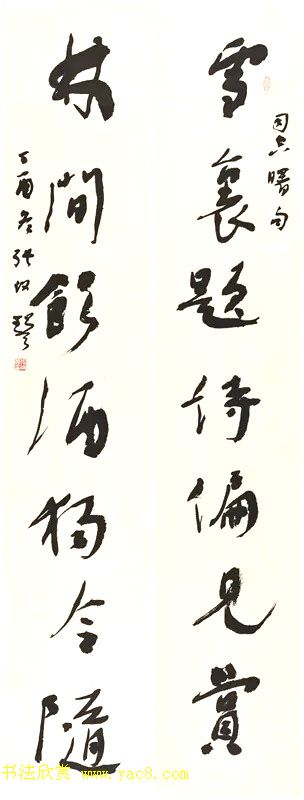 司空曙句
雪裏題詩偏見賞
林間飲酒獨令隨
丁酉冬張
书法欣赏 www.yac8.com